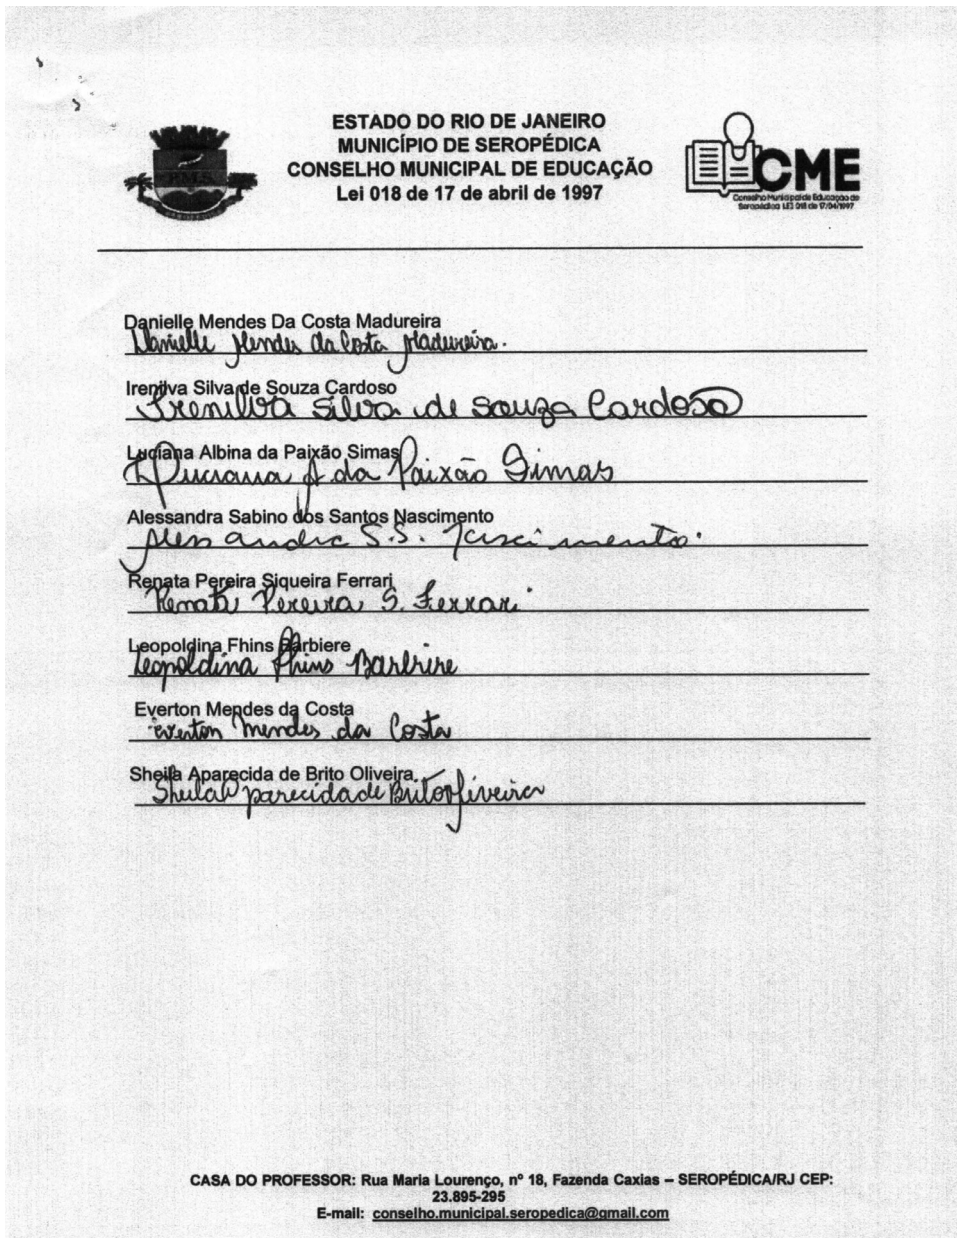 ESTADO DO RIO DE JANEIRO
MUNICÍPIO DE SEROPÉDICA
CONSELHO MUNICIPAL DE EDUCAÇÃO
Lei 018 de 17 de abril de 1997
P.M.S.
CME
Conselho Municipal de Educação de
Seropédica LEI 018 de 17/04/1997
Danielle Mendes Da Costa Madureira
Danielle Mendes da Costa Madureira.
Irenilva Silva de Souza Cardoso
Irenilva Silva de Souza Cardoso
Luciana Albina da Paixão Simas
Luciana A. da Paixão Simas
Alessandra Sabino dos Santos Nascimento
Alessandra S.S. Nascimento.
Renata Pereira Siqueira Ferrari
Renata Pereira S. Ferrari
Leopoldina Fhins Barbiere
Leopoldina Fhins Barbiere
Everton Mendes da Costa
Everton Mendes da Costa
Sheila Aparecida de Brito Oliveira
Sheila Aparecida de Brito Oliveira
CASA DO PROFESSOR: Rua Maria Lourenço, nº 18, Fazenda Caxias – SEROPÉDICA/RJ CEP:
23.895-295
E-mail: conselho.municipal.seropedica@gmail.com